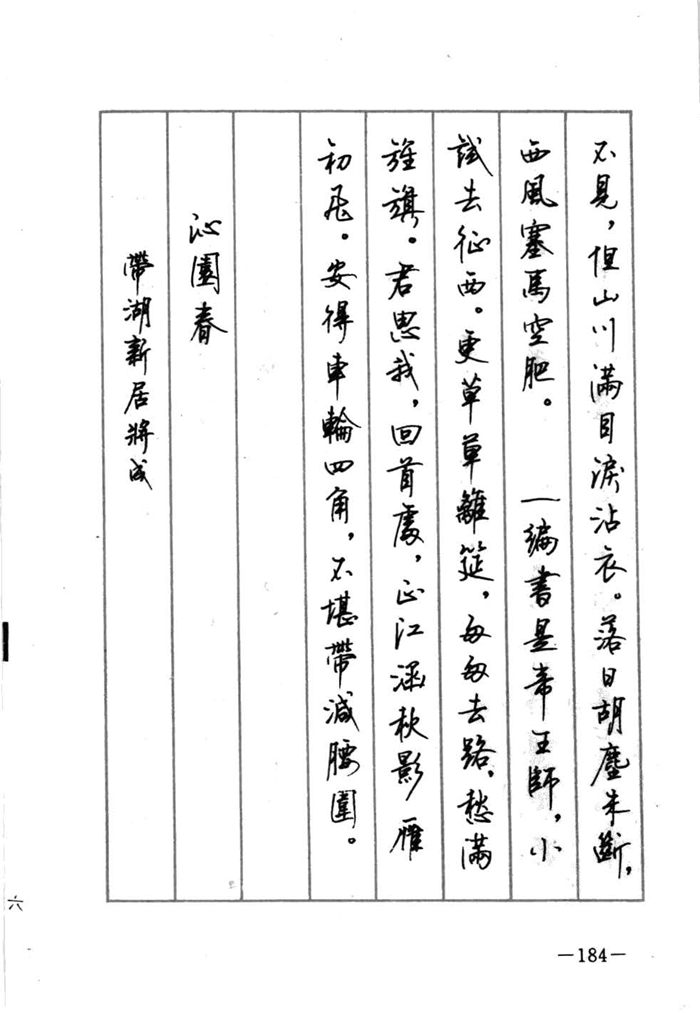 不見，但山川滿目淚沾衣。落日胡塵未斷，
西風塞馬空肥。　一編書是帝王師，小
試去征西。更草草離筵，匆匆去路，愁滿
旌旗。君思我，回首處，正江涵秋影雁
初飛。安得車輪四角，不堪帶減腰圍。
沁園春
帶湖新居將成
六
—184—